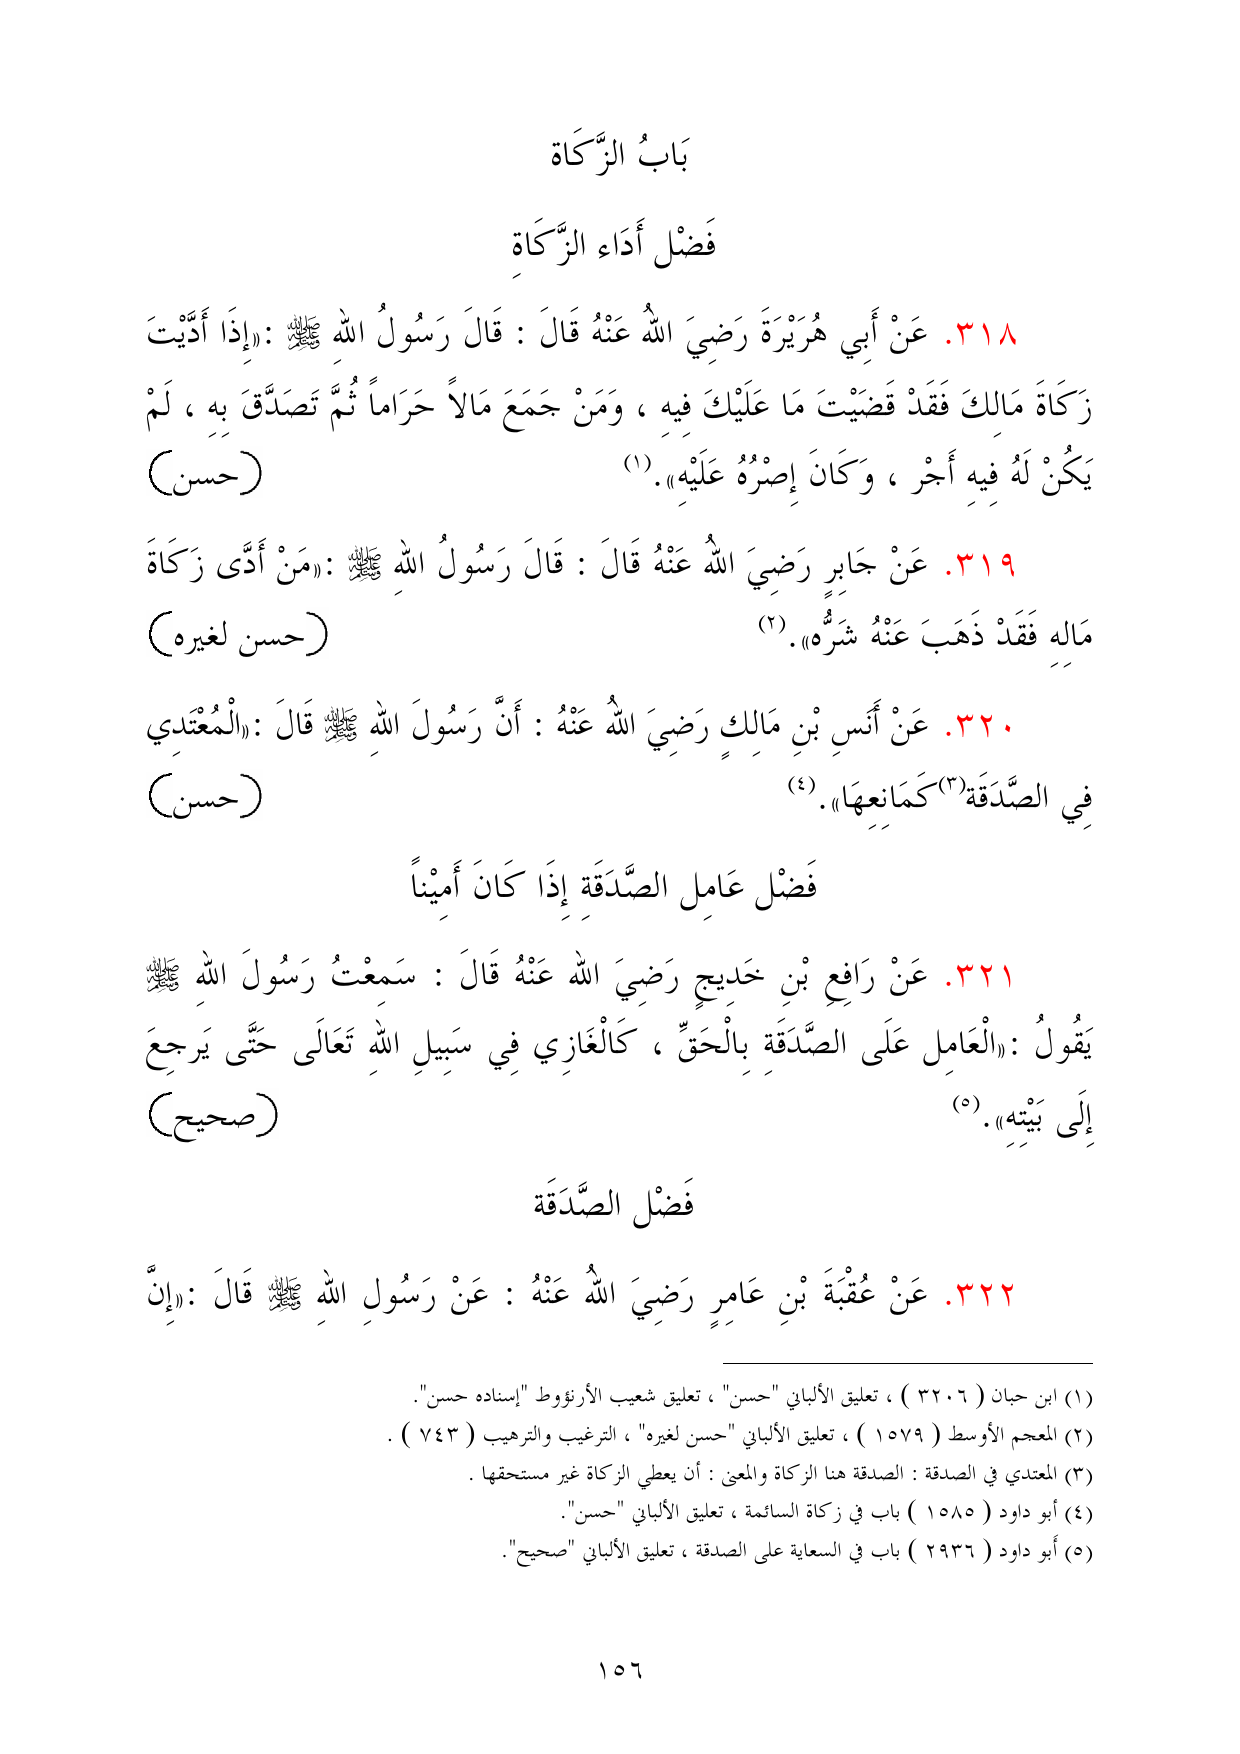 بَابُ الزَّكَاة
فَضْل أَدَاء الزَّكَاةِ
٣١٨. عَنْ أَبِي هُرَيْرَةَ رَضِيَ اللهُ عَنْهُ قَالَ : قَالَ رَسُولُ اللهِ ﷺ :«إِذَا أَدَّيْتَ
زَكَاةَ مَالِكَ فَقَدْ قَضَيْتَ مَا عَلَيْكَ فِيهِ ، وَمَنْ جَمَعَ مَالاً حَرَاماً ثُمَّ تَصَدَّقَ بِهِ ، لَمْ
يَكُنْ لَهُ فِيهِ أَجْر ، وَكَانَ إِصْرُهُ عَلَيْهِ».(١) (حسن)
٣١٩. عَنْ جَابِرٍ رَضِيَ اللهُ عَنْهُ قَالَ : قَالَ رَسُولُ اللهِ ﷺ :«مَنْ أَدَّى زَكَاةَ
مَالِهِ فَقَدْ ذَهَبَ عَنْهُ شَرُّه».(٢) (حسن لغيره)
٣٢٠. عَنْ أَنَسِ بْنِ مَالِكٍ رَضِيَ اللهُ عَنْهُ : أَنَّ رَسُولَ اللهِ ﷺ قَالَ :«الْمُعْتَدِي
فِي الصَّدَقَة(٣)كَمَانِعِهَا».(٤) (حسن)
فَضْل عَامِل الصَّدَقَةِ إِذَا كَانَ أَمِيْناً
٣٢١. عَنْ رَافِعِ بْنِ خَدِيجٍ رَضِيَ الله عَنْهُ قَالَ : سَمِعْتُ رَسُولَ اللهِ ﷺ
يَقُولُ :«الْعَامِل عَلَى الصَّدَقَةِ بِالْحَقِّ ، كَالْغَازِي فِي سَبِيلِ اللهِ تَعَالَى حَتَّى يَرجِعَ
إِلَى بَيْتِهِ».(٥) (صحيح)
فَضْل الصَّدَقَة
٣٢٢. عَنْ عُقْبَةَ بْنِ عَامِرٍ رَضِيَ اللهُ عَنْهُ : عَنْ رَسُولِ اللهِ ﷺ قَالَ :«إِنَّ
(١) ابن حبان ( ٣٢٠٦ ) ، تعليق الألباني "حسن" ، تعليق شعيب الأرنؤوط "إسناده حسن".
(٢) المعجم الأوسط ( ١٥٧٩ ) ، تعليق الألباني "حسن لغيره" ، الترغيب والترهيب ( ٧٤٣ ) .
(٣) المعتدي في الصدقة : الصدقة هنا الزكاة والمعنى : أن يعطي الزكاة غير مستحقها .
(٤) أبو داود ( ١٥٨٥ ) باب في زكاة السائمة ، تعليق الألباني "حسن".
(٥) أَبو داود ( ٢٩٣٦ ) باب في السعاية على الصدقة ، تعليق الألباني "صحيح".
١٥٦